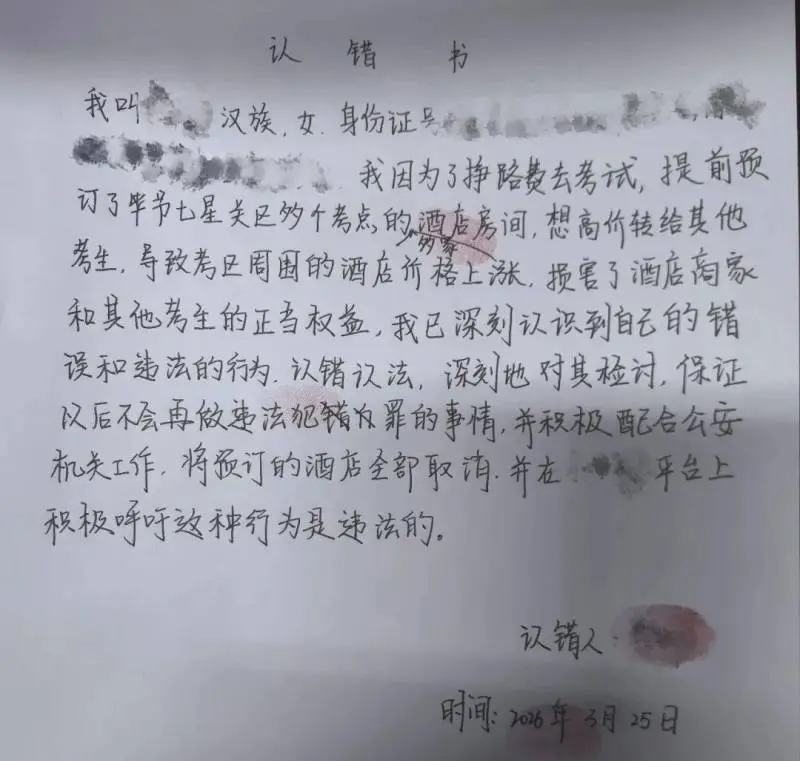 认错书
我叫 汉族,女.身份证号
我因为了挣路费去考试,提前预
订了毕节七星关区多个考点的酒店房间,想高价转给其他
多家
考生,导致考区周围的酒店价格上涨,损害了酒店商家
和其他考生的正当权益,我已深刻认识到自己的错
误和违法的行为.认错认法,深刻地对其检讨,保证
以后不会再做违法犯错罪的事情,并积极配合公安
机关工作.将预订的酒店全部取消.并在 平台上
积极呼吁这种行为是违法的。
认错人:
时间:2026年3月25日